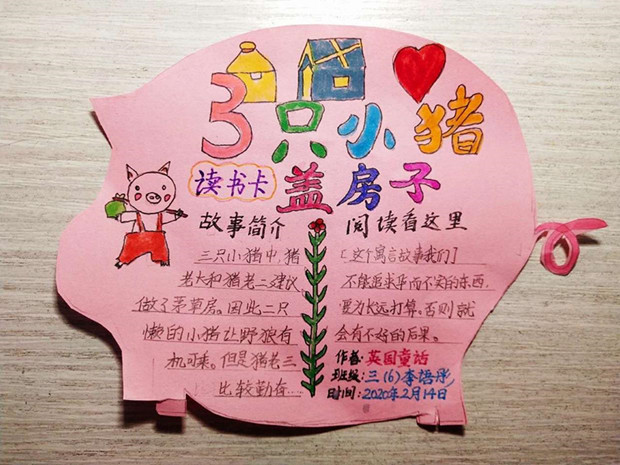 3只小猪
盖房子
读书卡
故事简介
三只小猪中,猪
老大和猪老二建议
做了茅草房。因此二只
懒的小猪让野狼有
机可乘。但是猪老三
比较勤奋...
阅读看这里
[这个寓言故事我们]
不能追求华而不实的东西,
要为长远打算。否则就
会有不好的后果。
作者:英国童话
班级:三(6)李语彤
时间:2020年2月14日